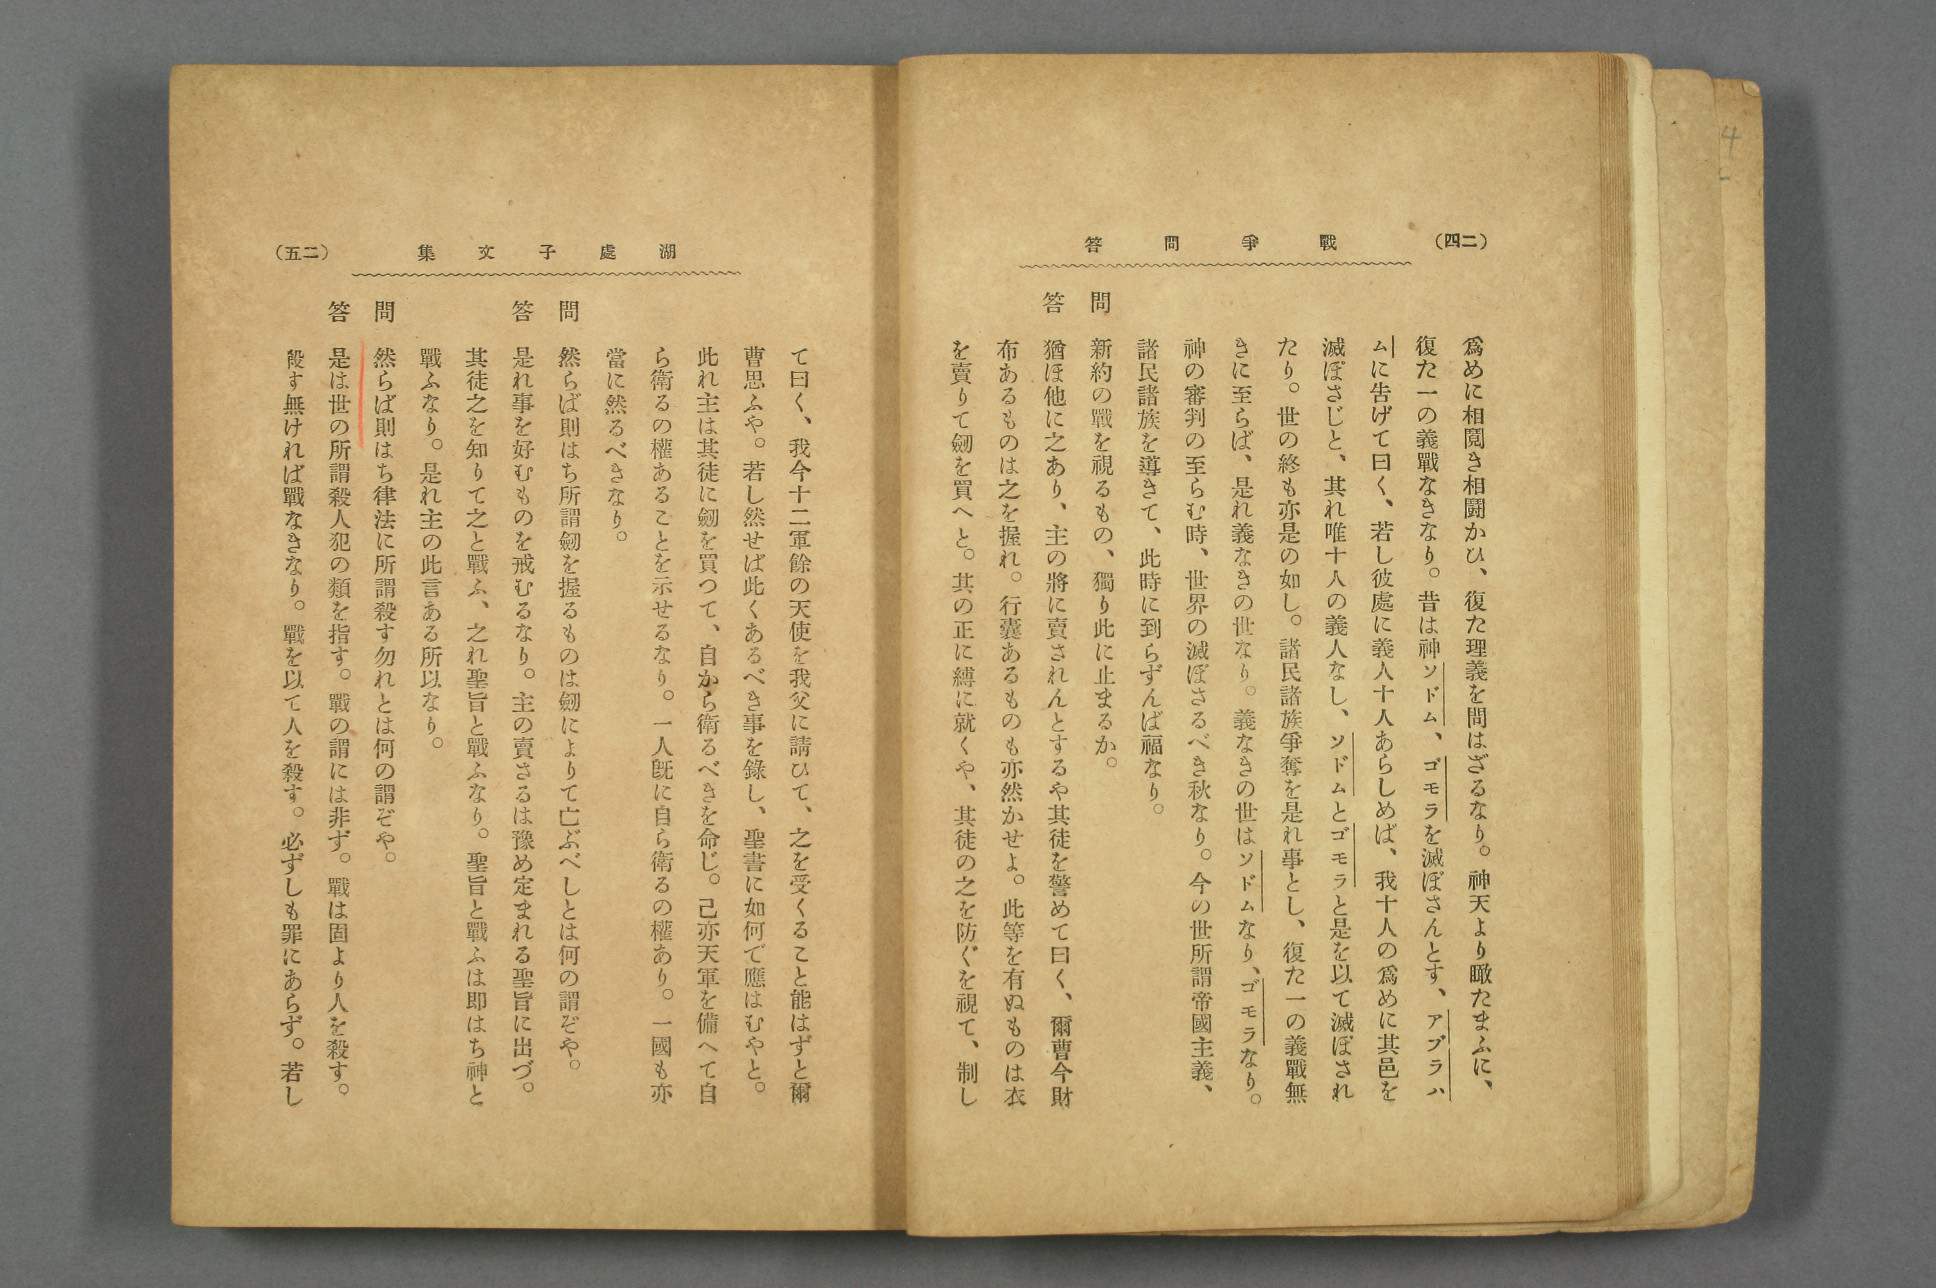 (二四)
戰爭問答
爲めに相鬩き相鬪かひ、復た理義を問はざるなり。神天より瞰たまふに、
復た一の義戰なきなり。昔は神ソドム、ゴモラを滅ぼさんとす、アブラハ
ムに告げて曰く、若し彼處に義人十人あらしめば、我十人の爲めに其邑を
滅ぼさじと、其れ唯十人の義人なし、ソドムとゴモラと是を以て滅ぼされ
たり。世の終も亦是の如し。諸民諸族爭奪を是れ事とし、復た一の義戰無
きに至らば、是れ義なきの世なり。義なきの世はソドムなり、ゴモラなり。
神の審判の至らむ時、世界の滅ぼさるべき秋なり。今の世所謂帝國主義、
諸民諸族を導きて、此時に到らずんば福なり。
問 新約の戰を視るもの、獨り此に止まるか。
答 猶ほ他に之あり、主の將に賣されんとするや其徒を警めて曰く、爾曹今財
布あるものは之を握れ。行囊あるものも亦然かせよ。此等を有ぬものは衣
を賣りて劒を買へと。其の正に縛に就くや、其徒の之を防ぐを視て、制し
湖處子文集
(二五)
て曰く、我今十二軍餘の天使を我父に請ひて、之を受くること能はずと爾
曹思ふや。若し然せば此くあるべき事を錄し、聖書に如何で應はむやと。
此れ主は其徒に劒を買つて、自から衛るべきを命じ。己亦天軍を備へて自
ら衛るの權あることを示せるなり。一人旣に自ら衛るの權あり。一國も亦
當に然るべきなり。
問 然らば則はち所謂劒を握るものは劒によりて亡ぶべしとは何の謂ぞや。
答 是れ事を好むものを戒むるなり。主の賣さるは豫め定まれる聖旨に出づ。
其徒之を知りて之と戰ふ、之れ聖旨と戰ふなり。聖旨と戰ふは即はち神と
戰ふなり。是れ主の此言ある所以なり。
問 然らば則はち律法に所謂殺す勿れとは何の謂ぞや。
答 是は世の所謂殺人犯の類を指す。戰の謂には非ず。戰は固より人を殺す。
殺す無ければ戰なきなり。戰を以て人を殺す。必ずしも罪にあらず。若し
4